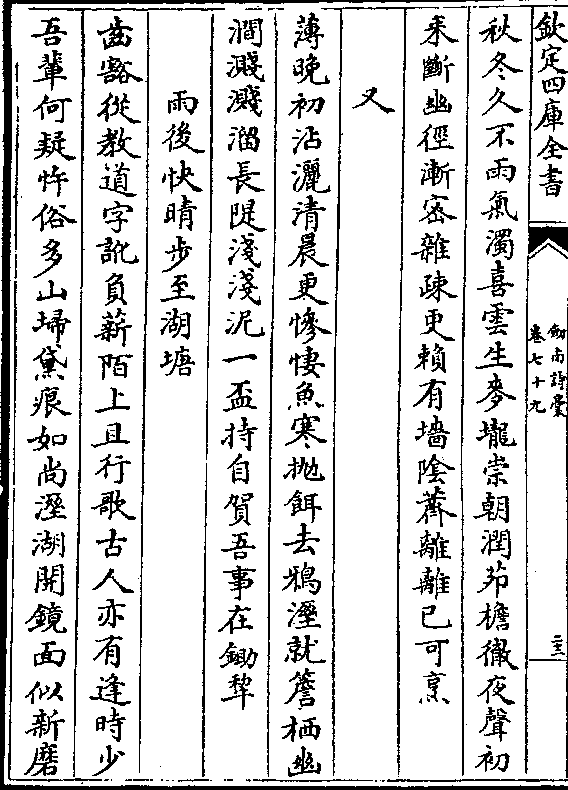 欽定四庫全書
劍南詩稾
卷七十九
二十三
秋冬久不雨氣濁喜雲生麥壠崇朝潤茆檐徹夜聲初
來斷幽徑漸密雜疎更賴有墻陰薺離離已可烹
又
薄晚初沾灑清晨更慘悽魚寒抛餌去鴉溼就簷栖幽
澗濺濺溜長隄淺淺泥一盃持自賀吾事在鋤犂
雨後快晴步至湖塘
齒豁從教道字訛負薪陌上且行歌古人亦有逢時少
吾輩何疑忤俗多山埽黛痕如尚溼湖開鏡面似新磨